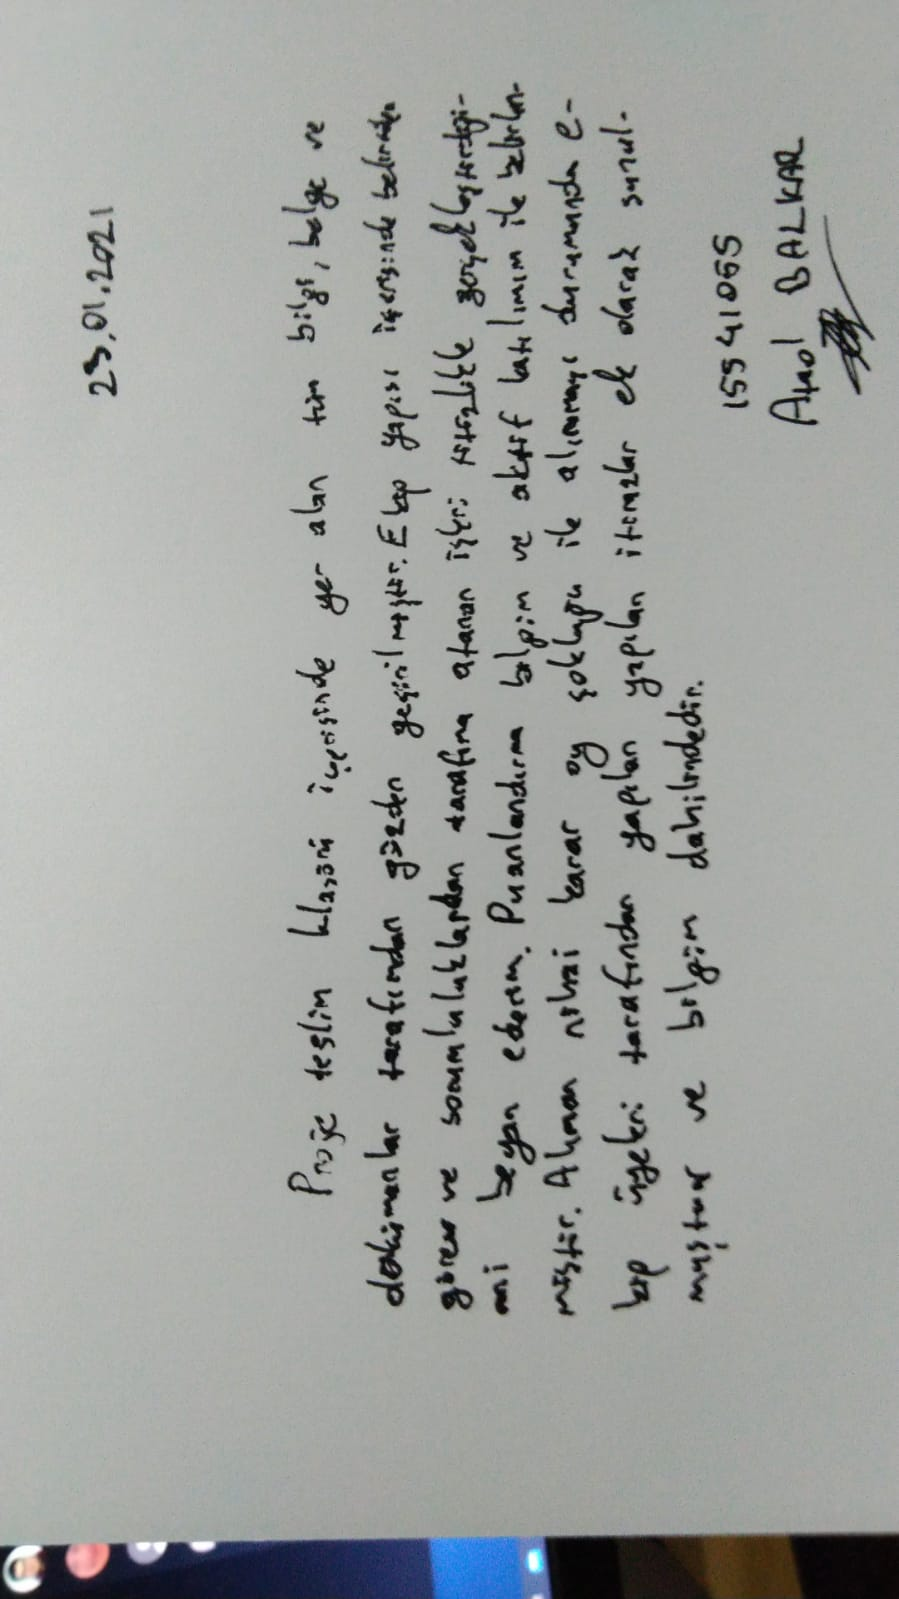 23.01.2021
Proje teslim klasörü içerisinde yer alan tüm bilgi, belge ve
dokümanlar tarafımdan gözden geçirilmiştir. Ekip yapısı içerisinde belirlenen
görev ve sorumluluklardan tarafıma atanan işleri titizlikle gerçekleştirdiği-
mi beyan ederim. Puanlandırma bilgim ve aktif katılımım ile belirlen-
miştir. Alınan nihai karar oy çokluğu ile alınmamış durumunda e-
kip üyeleri tarafından yapılan yapılan itirazlar ek olarak sunul-
muştur ve bilgim dahilindedir.
15541055
BALKAR